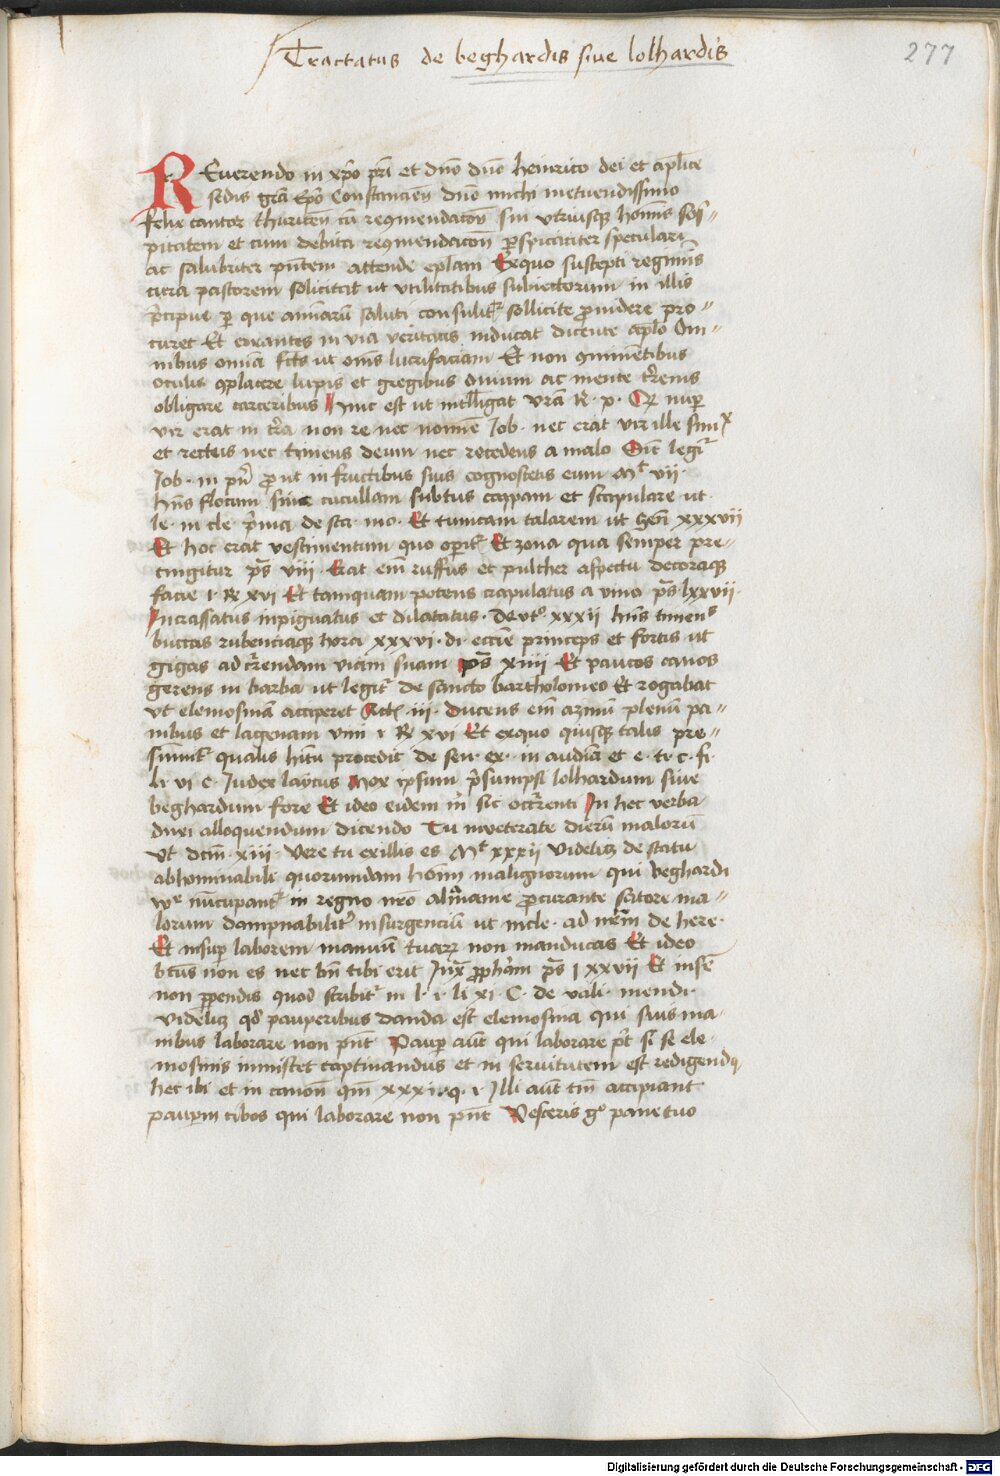 Tractatus de beghardis siue lolhardis
277
REuerendo in xp̄o pr̄i et dn̄o dn̄o heinrico dei et apl̄ice
sedis grā ep̄o Constancien̄ dn̄o michi metuendissimo
felix cantor thuricen̄ cū recōmendacōn̄ sui vtriusqꝫ hoīnis sos〃
pitatem et cum debita recōmendacōn̄ ꝑspicaciter speculari
ac salubriter pn̄tem attende epl̄am Exquo suscepti regiminis
cura pastorem solicitat ut vtilitatibus subiectorum in illis
p̄cipue ꝑ que animarū saluti consulit᷑ sollicite ꝓuidere pro〃
curet Et errantes in via veritatis inducat dicente apl̄o Om〃
nibus omīa fc̄s ut om̄s lucrifaciam Et non ꝯniuentibus
oculis ꝯplacere lupis et gregibus ouium ac mente t̄renis
obligare carceribus Hinc est ut intelligat vr̄a R. p. Qꝫ nuꝑ
vir erat in t̄ra non re nec nomīe Job. nec erat vir ille simpˣ
et rectus nec timens deum nec recedens a malo Sic legit᷑
Job. in pn̄. ꝓut in fructibus suis cognoscetis eum Mt vii.
hn̄s flocum siue cucullam subtus cappam et scapulare ut.
le. in cle. p̄ma de sta. mo. Et tunicam talarem ut Gen̄ xxxvii
Et hoc erat vestimentum quo operit᷑ Et zona qua semper pre〃
cingitur ps̄ viii. Erat em̄ ruffus et pulcher aspectu decoraqꝫ
facie i. R xvi Et tamquam potens crapulatus a vino ps̄ lxxvii.
Incrassatus inpignatus et dilatatus. deutᵒ xxxii hn̄s tumen̄s
buccas rubentiaqꝫ hora xxxvi. di ecc̄ie princeps et fortis ut
gigas ad c̄rendam viam suam ps̄ xviii Et paucos canos
gerens in barba ut legit᷑ de sancto bartholomeo Et rogabat
vt elemosinā acciperet Act᷑ iii. ducens em̄ azinū plenū pa〃
nibus et lagenam vini i R xvi Et exquo quisqꝫ talis pre〃
sumit᷑ qualis hitu procedit de sen. ex. in audiā et c. ti. c. fi.
li. vi c. Judex laycus Mox ipsum p̄sumpsi lolhardum siue
beghardum fore Et ideo eidem in̄ sic occ̄renti In hec verba
duxi alloquendum dicendo Tu inueterate dierū malorū
vt dan̄. xiii. Vere tu ex illis es Mt xxvii videlicꝫ de statu
abhominabili quorumdam hoīm malignorum qui beghardi
wͬ nūcupant᷑ in regno nr̄o alm̄anie ꝓcurante satore ma〃
lorum dampnabilit᷑ insurgenciū ut in cle. ad nr̄am de here.
Et insup laborem manuū tuarꝝ non manducas Et ideo
btūs non es nec bn̄ tibi erit Jux̄ ꝓph̄am ps̄ i xxvii Et insē
non ꝑpendis quod scribit᷑ in l. i. li xi. C. de vali. mendi.
videlicꝫ qd̄ pauperibus danda est elemosina qui suis ma〃
nibus laborare non pn̄t Paup aūt qui laborare pt̄ si se ele〃
mosinis inmiscet captiuandus et in seruitutem est redigendꝰ
hec ibi et in canon̄ qm̄ xxx i. q. i. Illi aūt tm̄ accipiant
pauꝑum cibos qui laborare non pn̄t Vesceris gͦ pane tuo
Digitalisierung gefördert durch die Deutsche Forschungsgemeinschaft - DFG